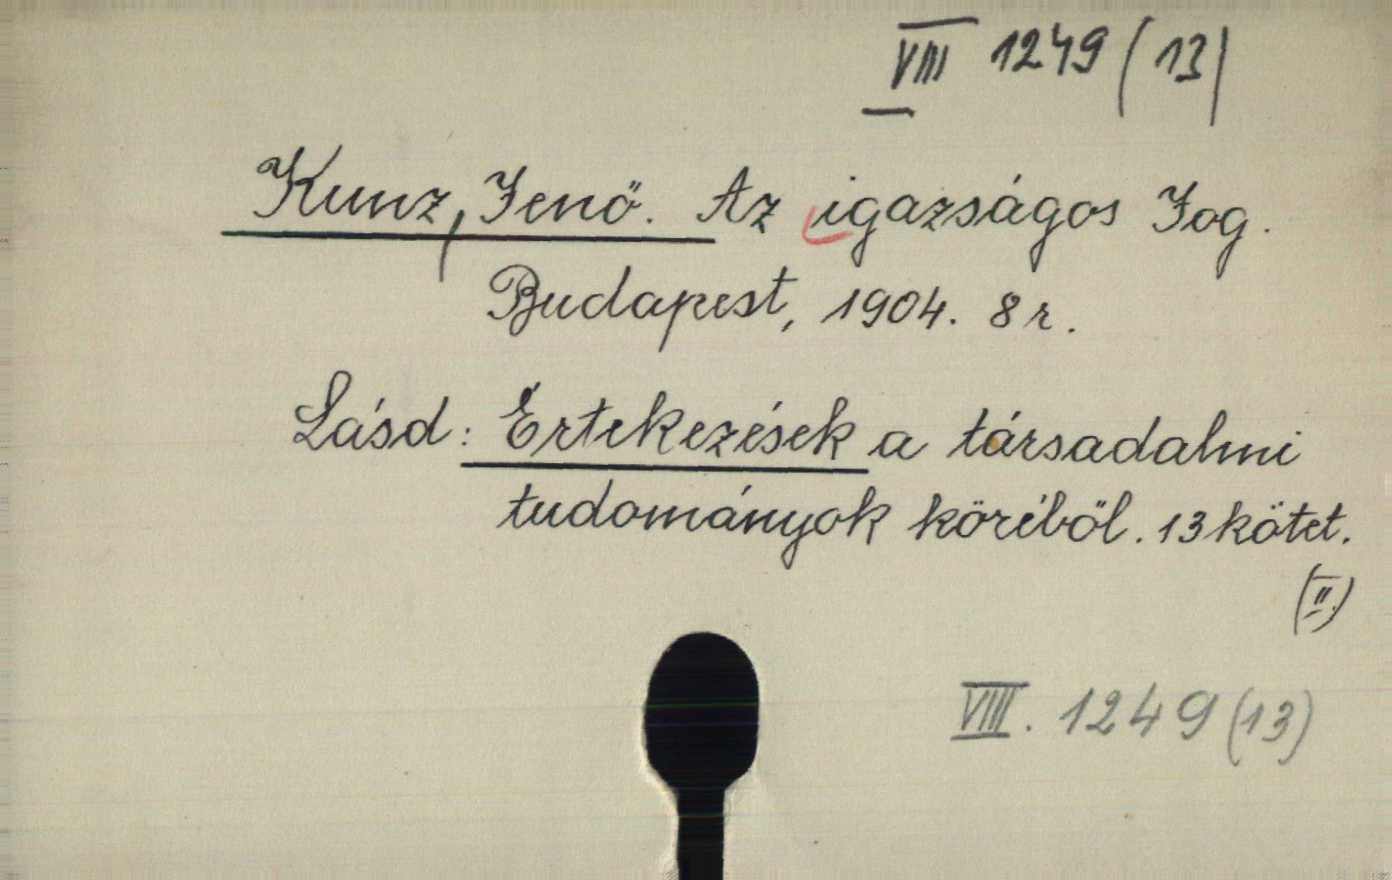 VIII 1249 (13)
Kunz, Jenő. Az igazságos Jog.
Budapest, 1904. 8 r.
Lásd: Értekezések a társadalmi
tudományok köréből. 13 kötet.
(II.)
VIII. 1249 (13)